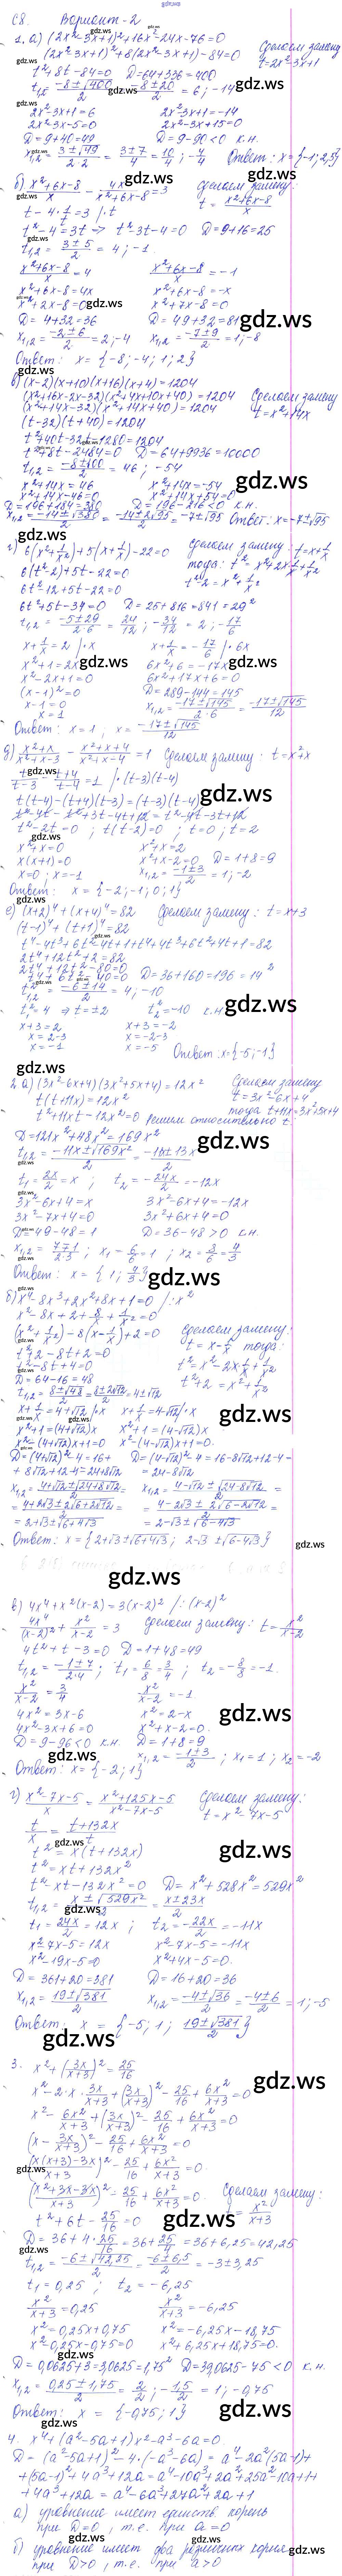 С8. Вариант-2
1. а) (2x²-3x+1)²+16x²-24x-76=0
(2x²-3x+1)²+8(2x²-3x+1)-84=0
Сделаем замену
t=2x²-3x+1
t²+8t-84=0 D=64+336=400
t₁,₂ = (-8±√400)/2 = (-8±20)/2 = 6; -14
2x²-3x+1=6 2x²-3x+1=-14
2x²-3x-5=0 2x²-3x+15=0
D=9+40=49 D=9-90<0 к.н.
Ответ: x={-1; 2,5}
б) (x²+6x-8)/x - 4x/(x²+6x-8) = 3
Сделаем замену:
t = (x²+6x-8)/x
t-4·1/t=3 /·t
t²-4=3t ⇒ t²-3t-4=0 D=9+16=25
t₁,₂ = (3±5)/2 = 4; -1.
(x²+6x-8)/x = 4 (x²+6x-8)/x = -1
x²+6x-8=4x x²+6x-8=-x
x²+2x-8=0 x²+7x-8=0
D=4+32=36 D=49+32=81
x₁,₂ = (-2±6)/2 = 2; -4 x₁,₂ = (-7±9)/2 = 1; -8
Ответ: x={-8; -4; 1; 2}
в) (x-2)(x+10)(x+16)(x+4)=1204
(x²+16x-2x-32)(x²+4x+10x+40)=1204
(x²+14x-32)(x²+14x+40)=1204
Сделаем замену
t=x²+14x
(t-32)(t+40)=1204
t²+40t-32t-1280=1204
t²+8t-2484=0 D=64+9936=10000
t₁,₂ = (-8±100)/2 = 46; -54
x²+14x=46 x²+14x=-54
x²+14x-46=0 x²+14x+54=0
D=196+184=380 D=196-216<0 к.н.
x₁,₂ = (-14±√380)/2 = (-14±2√95)/2 = -7±√95 Ответ: x=-7±√95
г) 6(x²+1/x²)+5(x+1/x)-22=0
Сделаем замену: t=x+1/x
тогда: t²=x²+2x·1/x+1/x²
6(t²-2)+5t-22=0 t²-2=x²+1/x²
6t²-12+5t-22=0
6t²+5t-34=0 D=25+816=841=29²
t₁,₂ = (-5±29)/(2·6) = 24/12; -34/12 = 2; -17/6
x+1/x=2 /·x x+1/x=-17/6 /·6x
x²+1=2x 6x²+6=-17x
x²-2x+1=0 6x²+17x+6=0
(x-1)²=0 D=289-144=145
x-1=0 x₁,₂ = (-17±√145)/(2·6) = (-17±√145)/12
x=1
Ответ: x=1; x=(-17±√145)/12
д) (x²+x)/(x²+x-3) - (x²+x+4)/(x²+x-4) = 1 Сделаем замену: t=x²+x
t/(t-3) - (t+4)/(t-4) = 1 /·(t-3)(t-4)
t(t-4)-(t+4)(t-3)=(t-3)(t-4)
t²-4t-t²+3t-4t+12=t²-4t-3t+12
t²-2t=0; t(t-2)=0; t=0; t=2
x²+x=0 x²+x=2
x(x+1)=0 x²+x-2=0 D=1+8=9
x=0; x=-1 x₁,₂ = (-1±3)/2 = 1; -2
Ответ: x={-2; -1; 0; 1}
е) (x+2)⁴+(x+4)⁴=82 Сделаем замену: t=x+3
(t-1)⁴+(t+1)⁴=82
t⁴-4t³+6t²-4t+1+t⁴+4t³+6t²+4t+1=82
2t⁴+12t²+2=82
2t⁴+12t²-80=0
t⁴+6t²-40=0 D=36+160=196=14²
t²₁,₂ = (-6±14)/2 = 4; -10
t²=4 ⇒ t=±2 t²=-10 к.н.
x+3=2 x+3=-2
x=2-3 x=-2-3
x=-1 x=-5 Ответ: x={-5; -1}
2. а) (3x²-6x+4)(3x²+5x+4)=12x² Сделаем замену
t=3x²-6x+4
t(t+11x)=12x² тогда t+11x=3x²+5x+4
t²+11xt-12x²=0 решим относительно t
D=121x²+48x²=169x²
t₁,₂ = (-11x±√169x²)/2 = (-11x±13x)/2
t₁=2x/2=x; t₂=-24x/2=-12x
3x²-6x+4=x 3x²-6x+4=-12x
3x²-7x+4=0 3x²+6x+4=0
D=49-48=1 D=36-48>0 к.н.
x₁,₂ = (7±1)/(2·3); x₁=6/6=1; x₂=8/6=4/3
Ответ: x={1; 4/3}
б) x⁴-8x³+2x²+8x+1=0 /:x²
x²-8x+2+8/x+1/x²=0
(x²+1/x²)-8(x-1/x)+2=0 Сделаем замену:
t=x-1/x тогда:
t²+2-8t+2=0 t²=x²-2x·1/x+1/x²
t²-8t+4=0 t²+2=x²+1/x²
D=64-16=48
t₁,₂ = (8±√48)/2 = (8±2√12)/2 = 4±√12
x+1/x=4+√12 /·x x+1/x=4-√12 /·x
x²+1=(4+√12)x x²+1=(4-√12)x
x²-(4+√12)x+1=0 x²-(4-√12)x+1=0.
D=(4+√12)²-4=16+ D=(4-√12)²-4=16-8√12+12-4=
+8√12+12-4=24+8√12 =24-8√12
x₁,₂ = (4+√12±√(24+8√12))/2 = x₁,₂ = (4-√12±√(24-8√12))/2 =
= (4+2√3±2√(6+2√12))/2 = = (4-2√3±2√(6-2√12))/2 =
= 2+√3±√(6+4√3) = 2-√3±√(6-4√3)
Ответ: x={2+√3±√(6+4√3); 2-√3±√(6-4√3)}
в) 4x⁴+x²(x-2)=3(x-2)² /:(x-2)²
4x⁴/(x-2)² + x²/(x-2) = 3 Сделаем замену: t=x²/(x-2)
4t²+t-3=0 D=1+48=49
t₁,₂ = (-1±7)/(2·4); t₁=6/8=3/4; t₂=-8/8=-1.
x²/(x-2)=3/4 x²/(x-2)=-1.
4x²=3x-6 x²=2-x
4x²-3x+6=0 x²+x-2=0.
D=9-96<0 к.н. D=1+8=9
x₁,₂ = (-1±3)/2; x₁=1; x₂=-2
Ответ: x={-2; 1}
г) (x²-7x-5)/x = (x²+125x-5)/(x²-7x-5) Сделаем замену:
t=x²-7x-5
t/x = (t+132x)/t
t²=x(t+132x)
t²=xt+132x²
t²-xt-132x²=0 D=x²+528x²=529x²
t₁,₂ = (x±√529x²)/2 = (x±23x)/2
t₁=24x/2=12x; t₂=-22x/2=-11x
x²-7x-5=12x x²-7x-5=-11x
x²-19x-5=0 x²+4x-5=0.
D=361+20=381 D=16+20=36
x₁,₂ = (19±√381)/2 x₁,₂ = (-4±√36)/2 = (-4±6)/2 = 1; -5
Ответ: x={-5; 1; (19±√381)/2}
3. x²+(3x/(x+3))²=25/16
x²-2·x·3x/(x+3)+(3x/(x+3))²-25/16+6x²/(x+3)=0
x²-6x²/(x+3)+(3x/(x+3))²-25/16+6x²/(x+3)=0
(x-3x/(x+3))²-25/16+6x²/(x+3)=0
((x(x+3)-3x)/(x+3))²-25/16+6x²/(x+3)=0.
((x²+3x-3x)/(x+3))²-25/16+6x²/(x+3)=0. Сделаем замену:
t=x²/(x+3)
t²+6t-25/16=0
D=36+4·25/16=36+25/4=36+6,25=42,25
t₁,₂ = (-6±√42,25)/2 = (-6±6,5)/2 = -3±3,25
t₁=0,25; t₂=-6,25
x²/(x+3)=0,25 x²/(x+3)=-6,25
x²=0,25x+0,75 x²=-6,25x-18,75
x²-0,25x-0,75=0 x²+6,25x+18,75=0.
D=0,0625+3=3,0625=1,75² D=39,0625-75<0 к.н.
x₁,₂ = (0,25±1,75)/2 = 2/2; -1,5/2 = 1; -0,75
Ответ: x={-0,75; 1}
4. x⁴+(a²-5a+1)x²-a³-6a=0
D=(a²-5a+1)²-4·(-a³-6a)=a⁴-2a²(5a-1)+
+(5a-1)²+4a³+12a=a⁴-10a³+2a²+25a²-10a+1+
+4a³+12a=a⁴-6a³+27a²+2a+1
а) уравнение имеет единств. корень
при D=0, т.е. при a=0
б) уравнение имеет два различных корня
при D>0, т.е. при a>0
gdz.ws